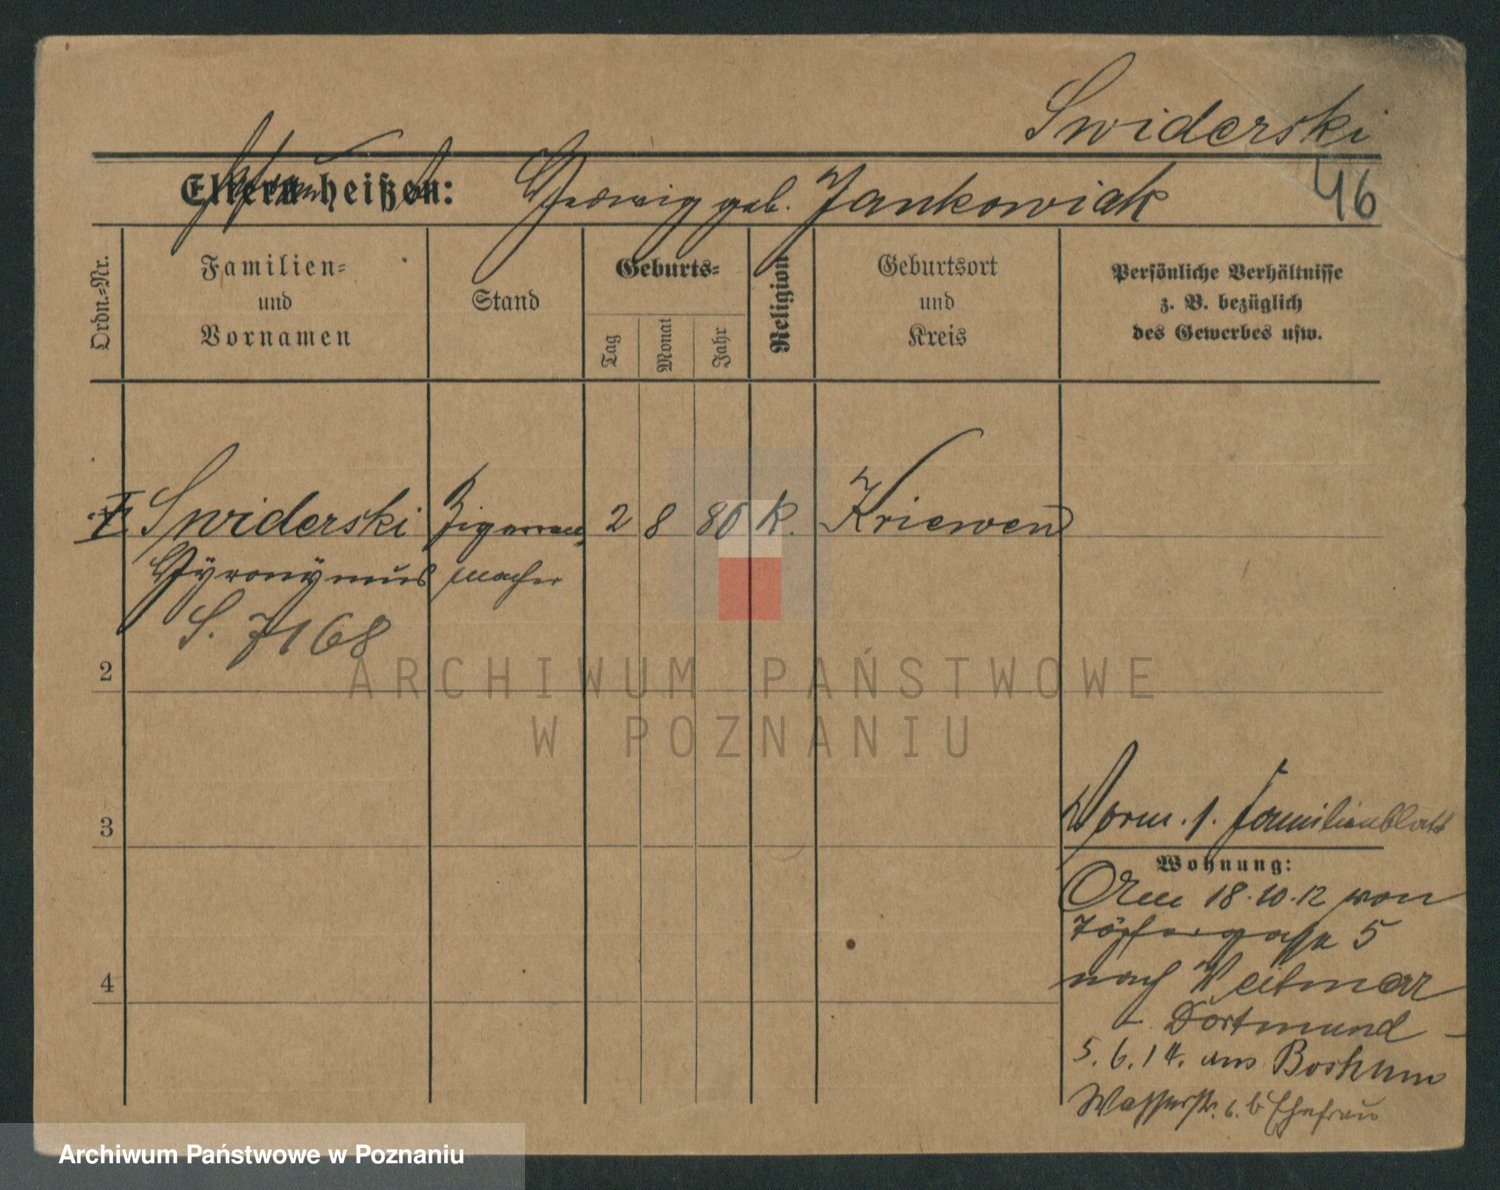 Swiderski
Eltern heißen: Hedwig geb. Jankowiak
46
Ordn.=Nr.
Familien=
und
Vornamen
Stand
Geburts=
Tag
Monat
Jahr
Religion
Geburtsort
und
Kreis
Persönliche Verhältnisse
z. B. bezüglich
des Gewerbes usw.
Swiderski Zigarren 2 8 80 k. Kriewen
Hyronymus macher
S. 7168
2
3
4
Vorm. 1. Familienblatt
Wohnung:
Am 18.10.12 von
Töpfergasse 5
nach Weitmar
- Dortmund -
5.6.14. aus Bochum
Wasserstr. 6. b Ehefrau
ARCHIWUM PAŃSTWOWE
W POZNANIU
Archiwum Państwowe w Poznaniu